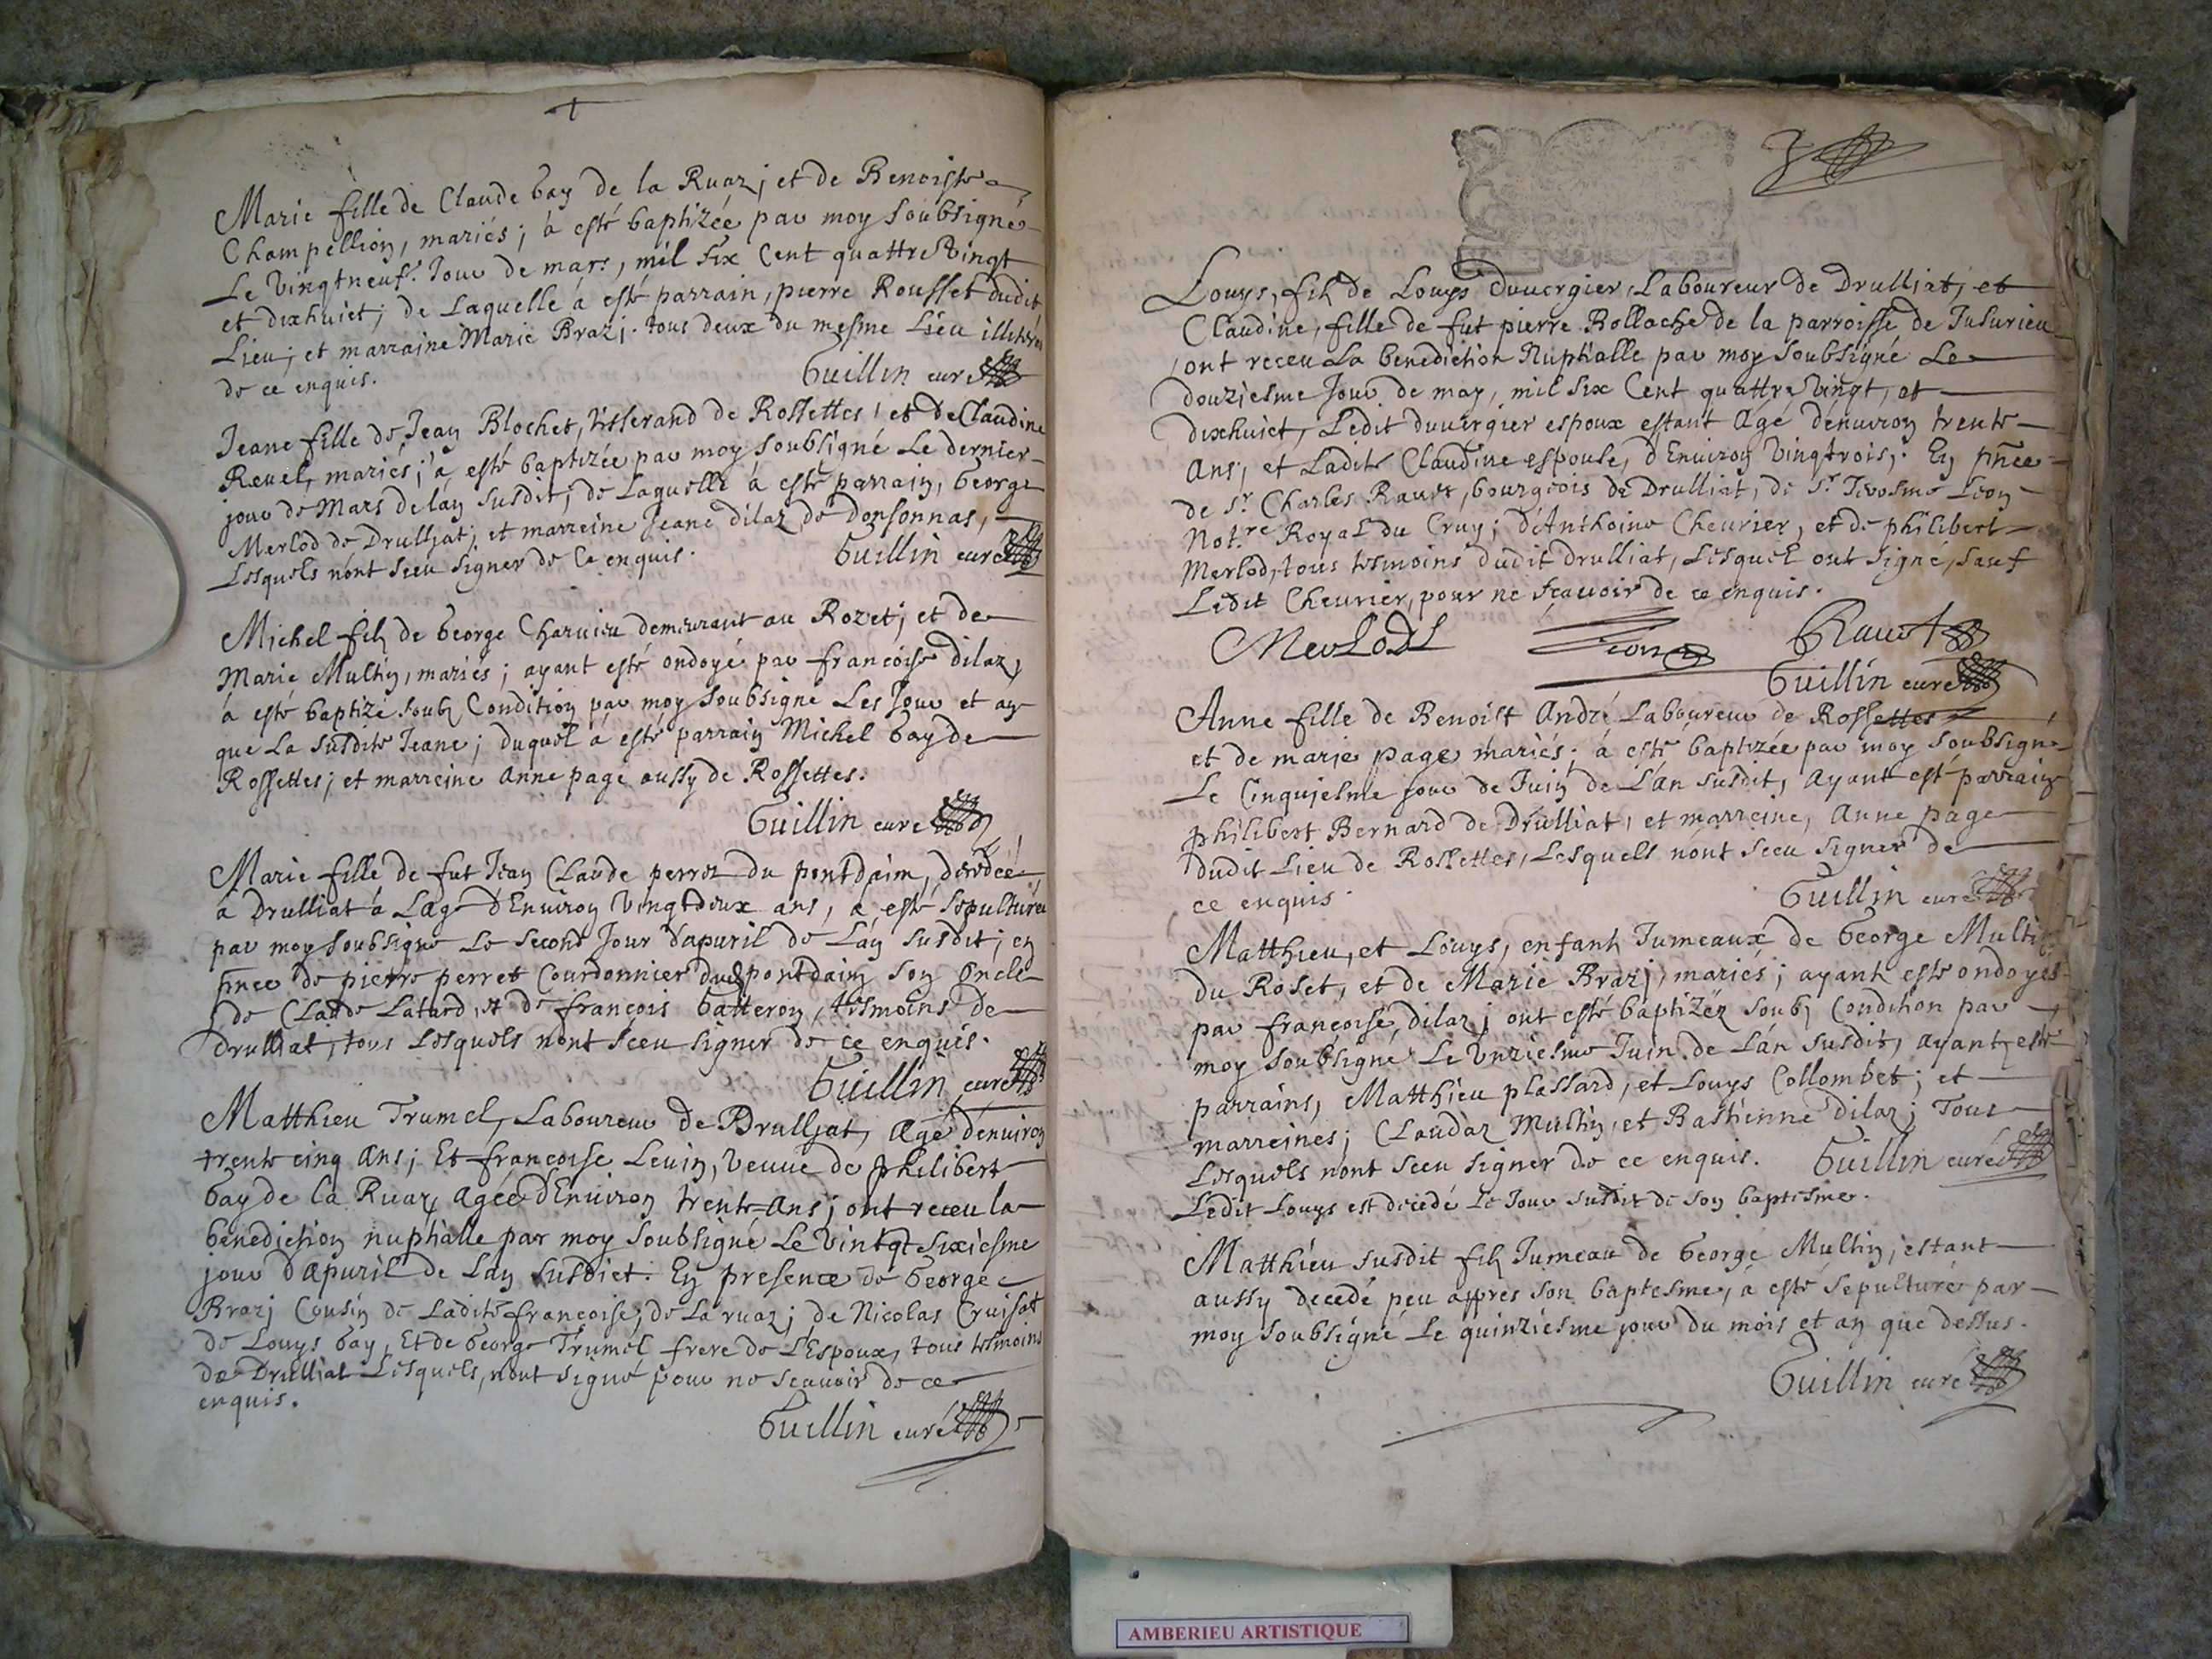 Marie fille de Claude bay de la Ruaz; et de Benoiste
Champellion, mariés; à esté baptizée par moy soubsigné
Le vingtneuf.e Jour de mars, mil six Cent quattre vingt
et dixhuict; de Laquelle à esté parrain, pierre Rousset dudit
Lieu; et marraine Marie Brazj. tous deux du mesme Lieu illiterés
de ce enquis.
Guillin curé
Jeane fille de Jean Blochet, tisserand de Rossettes; et de Claudine
Revel, mariés; à esté baptizée par moy soubsigné Le dernier
jour de Mars de lan susdit; de Laquelle à esté parrain, George
Merlod de Drulliat; et marreine Jeane dilaz de donsonnas,
Lesquels n'ont sceu signer de Ce enquis.
Guillin curé
Michel filz de George Charuieu demeurant au Rozet; et de
Marie Multin, mariés; ayant esté ondoyé par francoise dilaz,
à esté baptizé soubz Condition par moy soubsigné Les Jour et an
que La susdite Jeane; duquel à esté parrain Michel bay de
Rossettes; et marreine anne page aussy de Rossettes.
Guillin curé
Marie fille de fut Jean Claude perret du pontdain, décédée
à Drulliat à L'age d'Environ vingtdeux ans, à esté sepulturée
par moy soubsigné Le second Jour d'apuril de Lan susdit; en
pnce de pierre perret Courdonnier dud pontdain son oncle
de Claude Latard, et de françois Gatteron, tesmoins de
Drulliat, tous Lesquels n'ont sceu signer de ce enquis.
Guillin curé
Matthieu Trumel, Laboureur de Drulliat, Agé d'enuiron
trente cinq ans; Et françoise Leuin, veuue de philibert
bay de la Ruaz agée d'Enuiron trente-ans; ont receu la
benediction nuptialle par moy soubsigné Le vintgt sixiesme
jour d'apuril de Lan susdict. En presence de George
Brazj Cousin de Ladite francoise; de La ruaz; de Nicolas Cruisat
de Louys bay, Et de George Trumel frere de L'Espoux, tous tesmoins
de Drulliat Lesquels, n'ont signé pour ne scauoir de ce
enquis.
Guillin curé
Louys, filz de Louys duuergier, Laboureur de Drulliat; et
Claudine, fille de fut pierre Rollache de la parroisse de Jusurieu
ont receu La benediction Nuptialle par moy soubsigné Le
douziesme Jour de may, mil six Cent quattre vingt, et
dixhuict, Ledit duuergier espoux estant Agé d'enuiron trente
ans; et Ladite Claudine espouse, d'Enuiron vingtrois;. En pñce
de s.r Charles Rauet, bourgeois de Drulliat, de s.r Jerosme Leon
Not.re Royal du Cruy; d'Anthoine Cheurier, et de philibert
Merlod, tous tesmoins dudit drulliat, Lesquel ont signé, sauf
Ledit Cheurier, pour ne sçauoir de ce enquis.
Merlod Leon Rauet
Guillin curé
Anne fille de Benoist André Laboureur de Rossettes
et de marie page mariés; à esté baptizée par moy soubsigné
Le Cinquiesme jour de Juin de L'an susdit, ayant esté parrain
philibert Bernard de Drulliat, et marreine, Anne page
dudit Lieu de Rossettes, Lesquels n'ont sceu signer de
ce enquis
Guillin curé
Matthieu, et Louys, enfant Jumeaux de George Multin
du Roset, et de Marie Brazj mariés; ayant esté ondoyés
par françoise dilaz; ont esté baptizéz soubz Condition par
moy soubsigné Le vnziesme Juin de L'an susdit, ayant esté
parrains, Matthieu plassard, et Louys Collombet; et
marreines; Claudaz Multin, et Bastienne dilaz; Tous
Lesquels n'ont sceu signer de ce enquis. Guillin curé
Ledit Louys est décédé Le Jour susdit de son baptisme.
Matthieu susdit filz Jumeau de George Multin, estant
aussy decedé peu appres son baptesme, a esté sepulturé par
moy soubsigné Le quinziesme jour du mois et an que dessus.
Guillin curé
AMBERIEU ARTISTIQUE